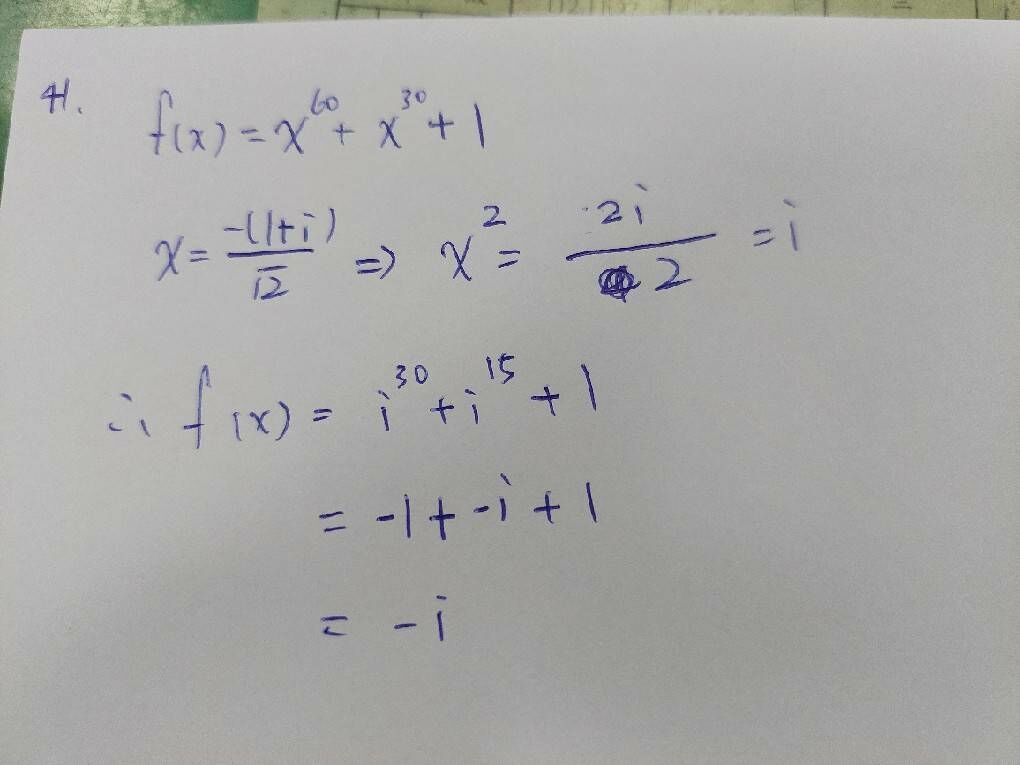 41.
f(x) = x^60 + x^30 + 1
x = -(1+i)/√2 ⇒ x^2 = 2i/2 = i
∴ f(x) = i^30 + i^15 + 1
= -1 + -i + 1
= -i